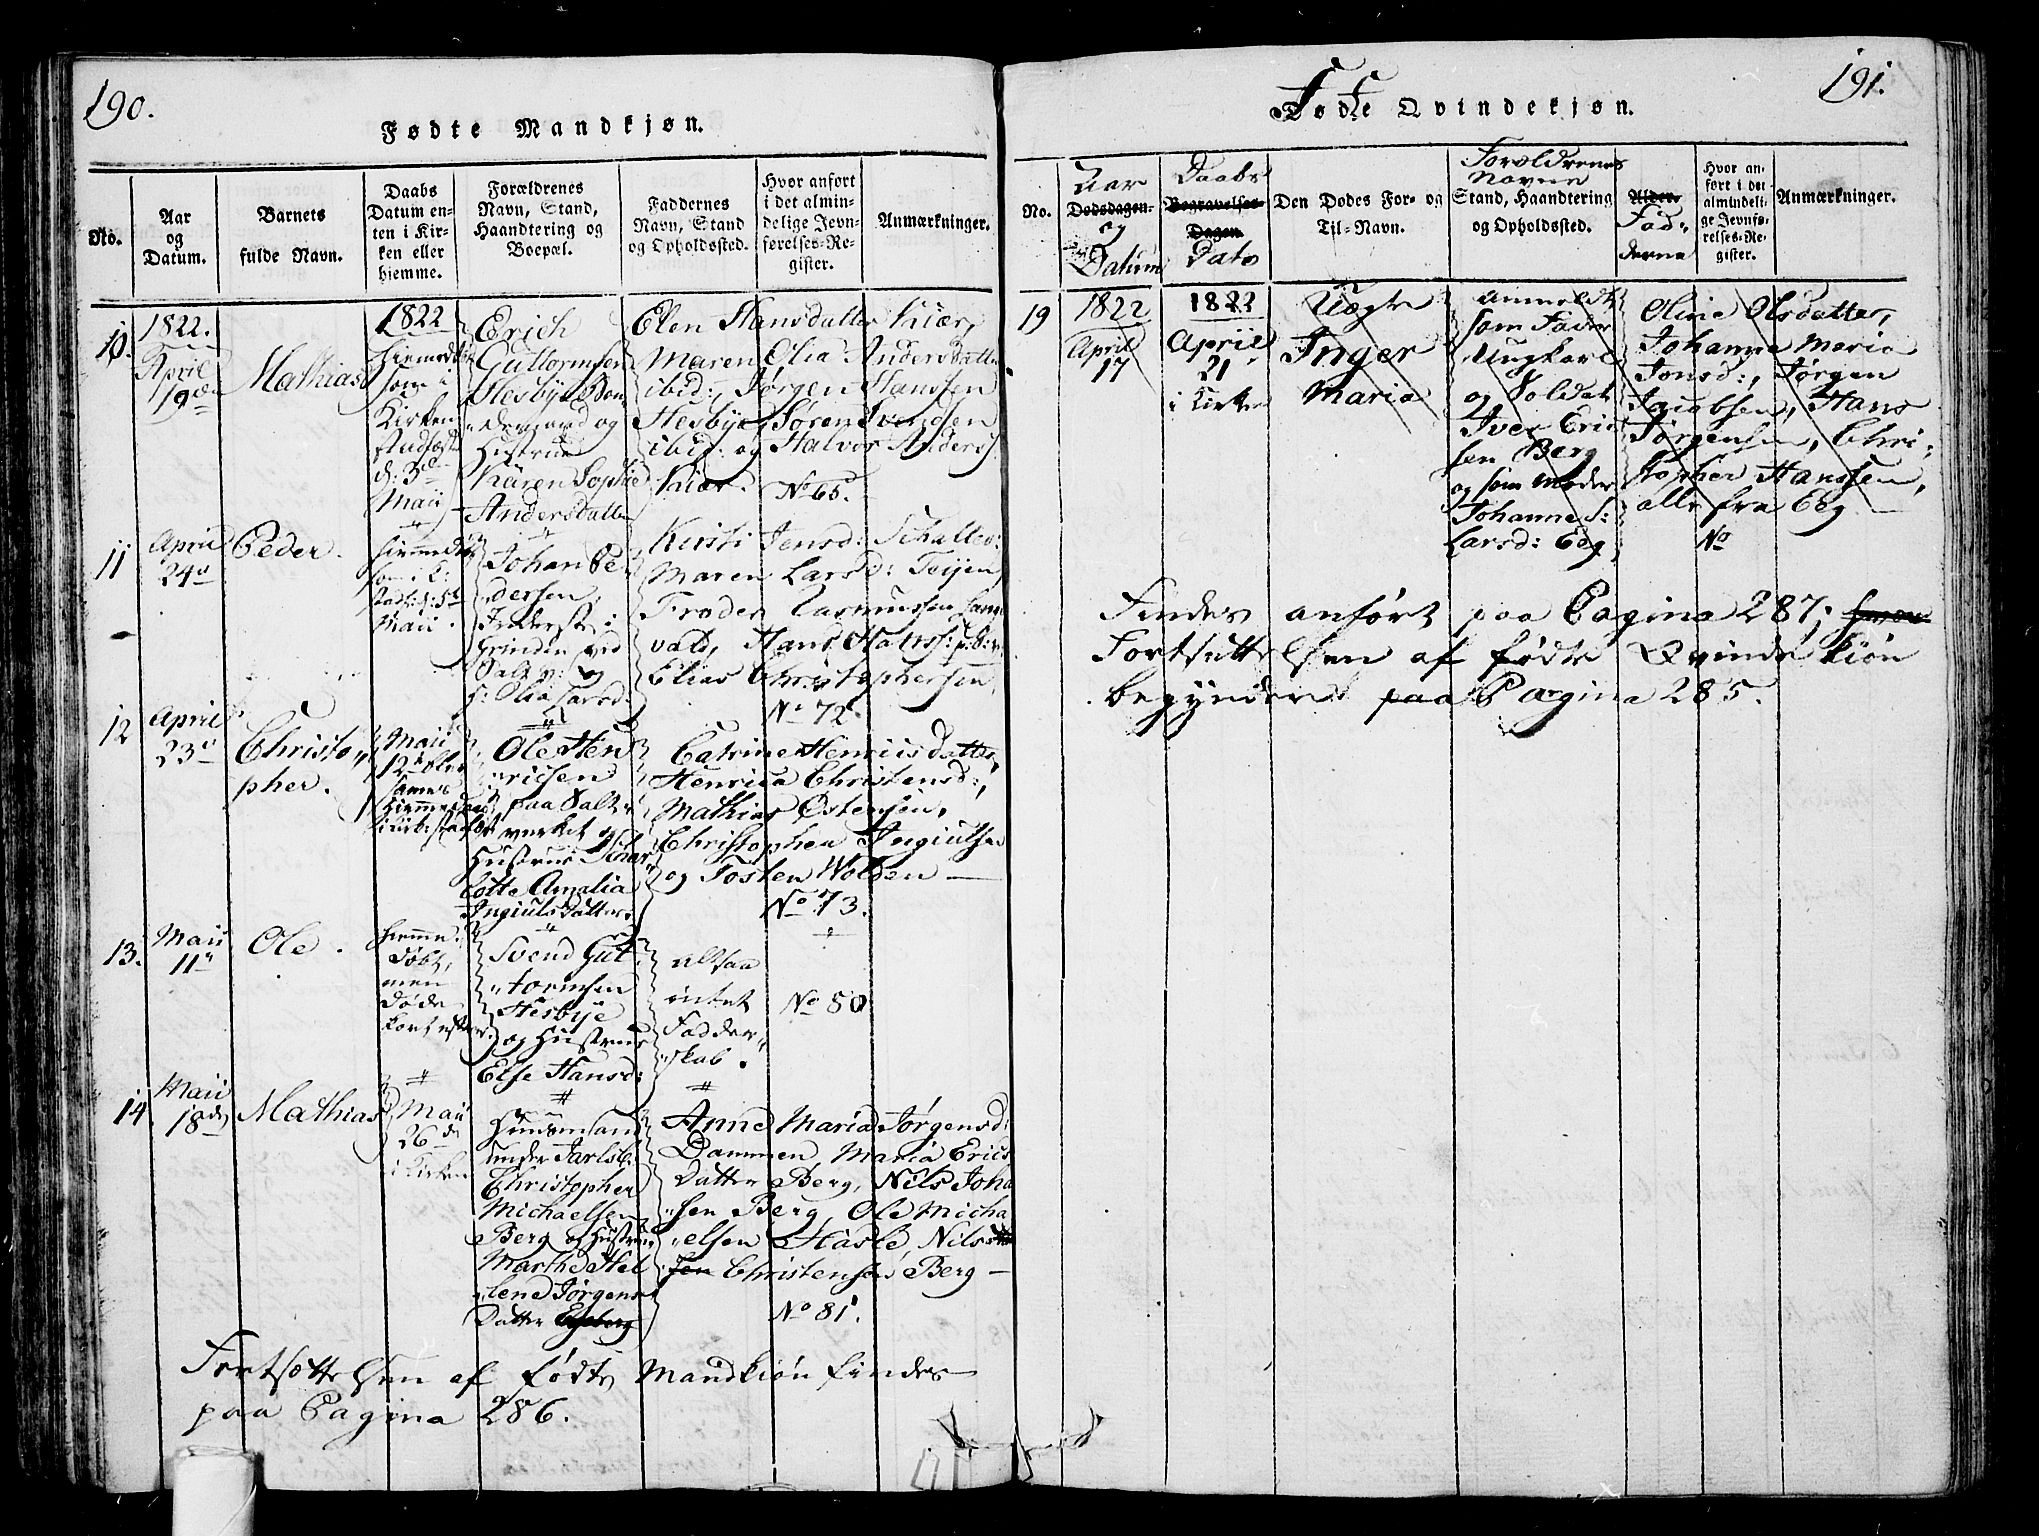 190.
Fødte Mandkjøn.
No.
Aar
og
Datum.
Barnets
fulde Navn.
Daabs
Datum en-
ten i Kir-
ken eller
hjemme.
Forældrenes
Navn, Stand,
Haandtering og
Boepæl.
Faddernes
Navn, Stand
og Opholdssted.
Hvor anført
i det almin-
delige Jevn-
førelses-Re-
gister.
Anmærkninger.
10.
1822.
April
19de
Mathias
1822
som i
Kirken
stadfæst
d: 5te
Maii
Erich
Guttormsen
Hesbye Bon-
demand og
Hustrue
Karen Sophie
Andersdatter
Elen Hansdatter Kiær,
Maren Olia Andersdatter
ibid:, Jørgen Hanssen
Hesbye, Søren Iversen
ibid: og Halvor Anders:
Kiær.
No 65.
11
April
24de
Peder.
som i K:
stadf: d: 5te
Maii.
Johan Pe-
dersen,
Inderste i
Grinden ved
Salt v: og
H: Olia Larsd:
Kirsti Jensd: Saltv:
Maren Larsd: Teijen,
Frader Rasmussen Lang
vald, Hans Halvs:
Elias Christophersen
No 72.
12
April
23de
Christo-
pher.
Maii
12te
Ole Hen
ricsen
paa Salt
verket og
Hustrue Schar
lotte Amalia
Ingiulsdatter.
Catrine Henricsdatter,
Henrica Christensd:,
Mathias Østensen,
Christopher Ingiulsen
og Tosten Wolden —
No 73.
13.
Maii
11te
Ole.
hjemme-
døbt,
men
døde
kort efter.
Svend Gut
tormsen
Hesbye
og Hustrue
Else Hansd:
altsaa
intet
Fadder-
skab.
No 80
14
Maii
18de
Mathias
Maii
26de
i Kirken
Huusmand
under Jarlsb:
Christopher
Michaelsen
Berg og Hustrue
Marthe Hel
lene Jørgens
Datter Egeberg
Anne Maria Jørgensd:
Dammen, Maria Erics
Datter Berg, Nils Joha
sen Berg, Ole Micha
elsen Hasle, Nils
sen Christensen Berg —
No 81.
Fortsættelsen af fødte Mandkiøn findes
paa Pagina 286.
191.
Fødte Qvindekjøn.
No.
Aar
Dødsdagen
og
Datum
Daabs
Begravelses-
Dagen
Dato
Den Dødes For- og
Til-Navn.
Forældrenes
Navne
Stand, Haandtering
og Opholdssted.
Alder.
Fad-
derne
Hvor an-
ført i det
almindeli-
ge Jevnfø-
relses-Re-
gister.
Anmærkninger.
19
1822
April
17
1822
April
21
i Kirken
Uægte
Inger
Maria
Anmeldt
som Fader
Ungkarl
og Soldat
Iver Eric
sen Berg
og som Moder
Johanne S:
Larsd: Eeg,
Oline Olsdatter,
Johanna Maria
Jonsd:, Jørgen
Jacobsen, Hans
Jørgensen, Chri-
stopher Hanssen,
alle fra Eeg —
No
Findes anført paa Pagina 287;
Fortsættelsen af fødte Qvindekiøn
begynder paa Pagina 285.